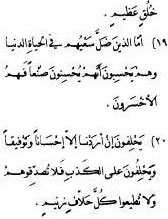 خُلُقٍ عَظِيمٍ .
(١٩) أَمَّا الَّذِينَ ضَلَّ سَعْيُهُم فِي الْحَيَاةِ الدُّنْيا
وهُمْ يَحْسِبُونَ أَنَّهُمْ يُحْسِنُونَ صُنْعاً فَهُمُ
الأَخْسَرُونَ .
(٢٠) يَحْلِفُونَ إِنْ أَرَدْنَا إِلاَّ إِحْسَاناً وَتَوْفِيقاً
وَيَحْلِفُونَ عَلَى الكَذِبِ فَلاَ تُصَدِّقُوهُمْ
وَلاَ تُطِيعُوا كُلَّ حَلاَّفٍ زَنِيمٍ .